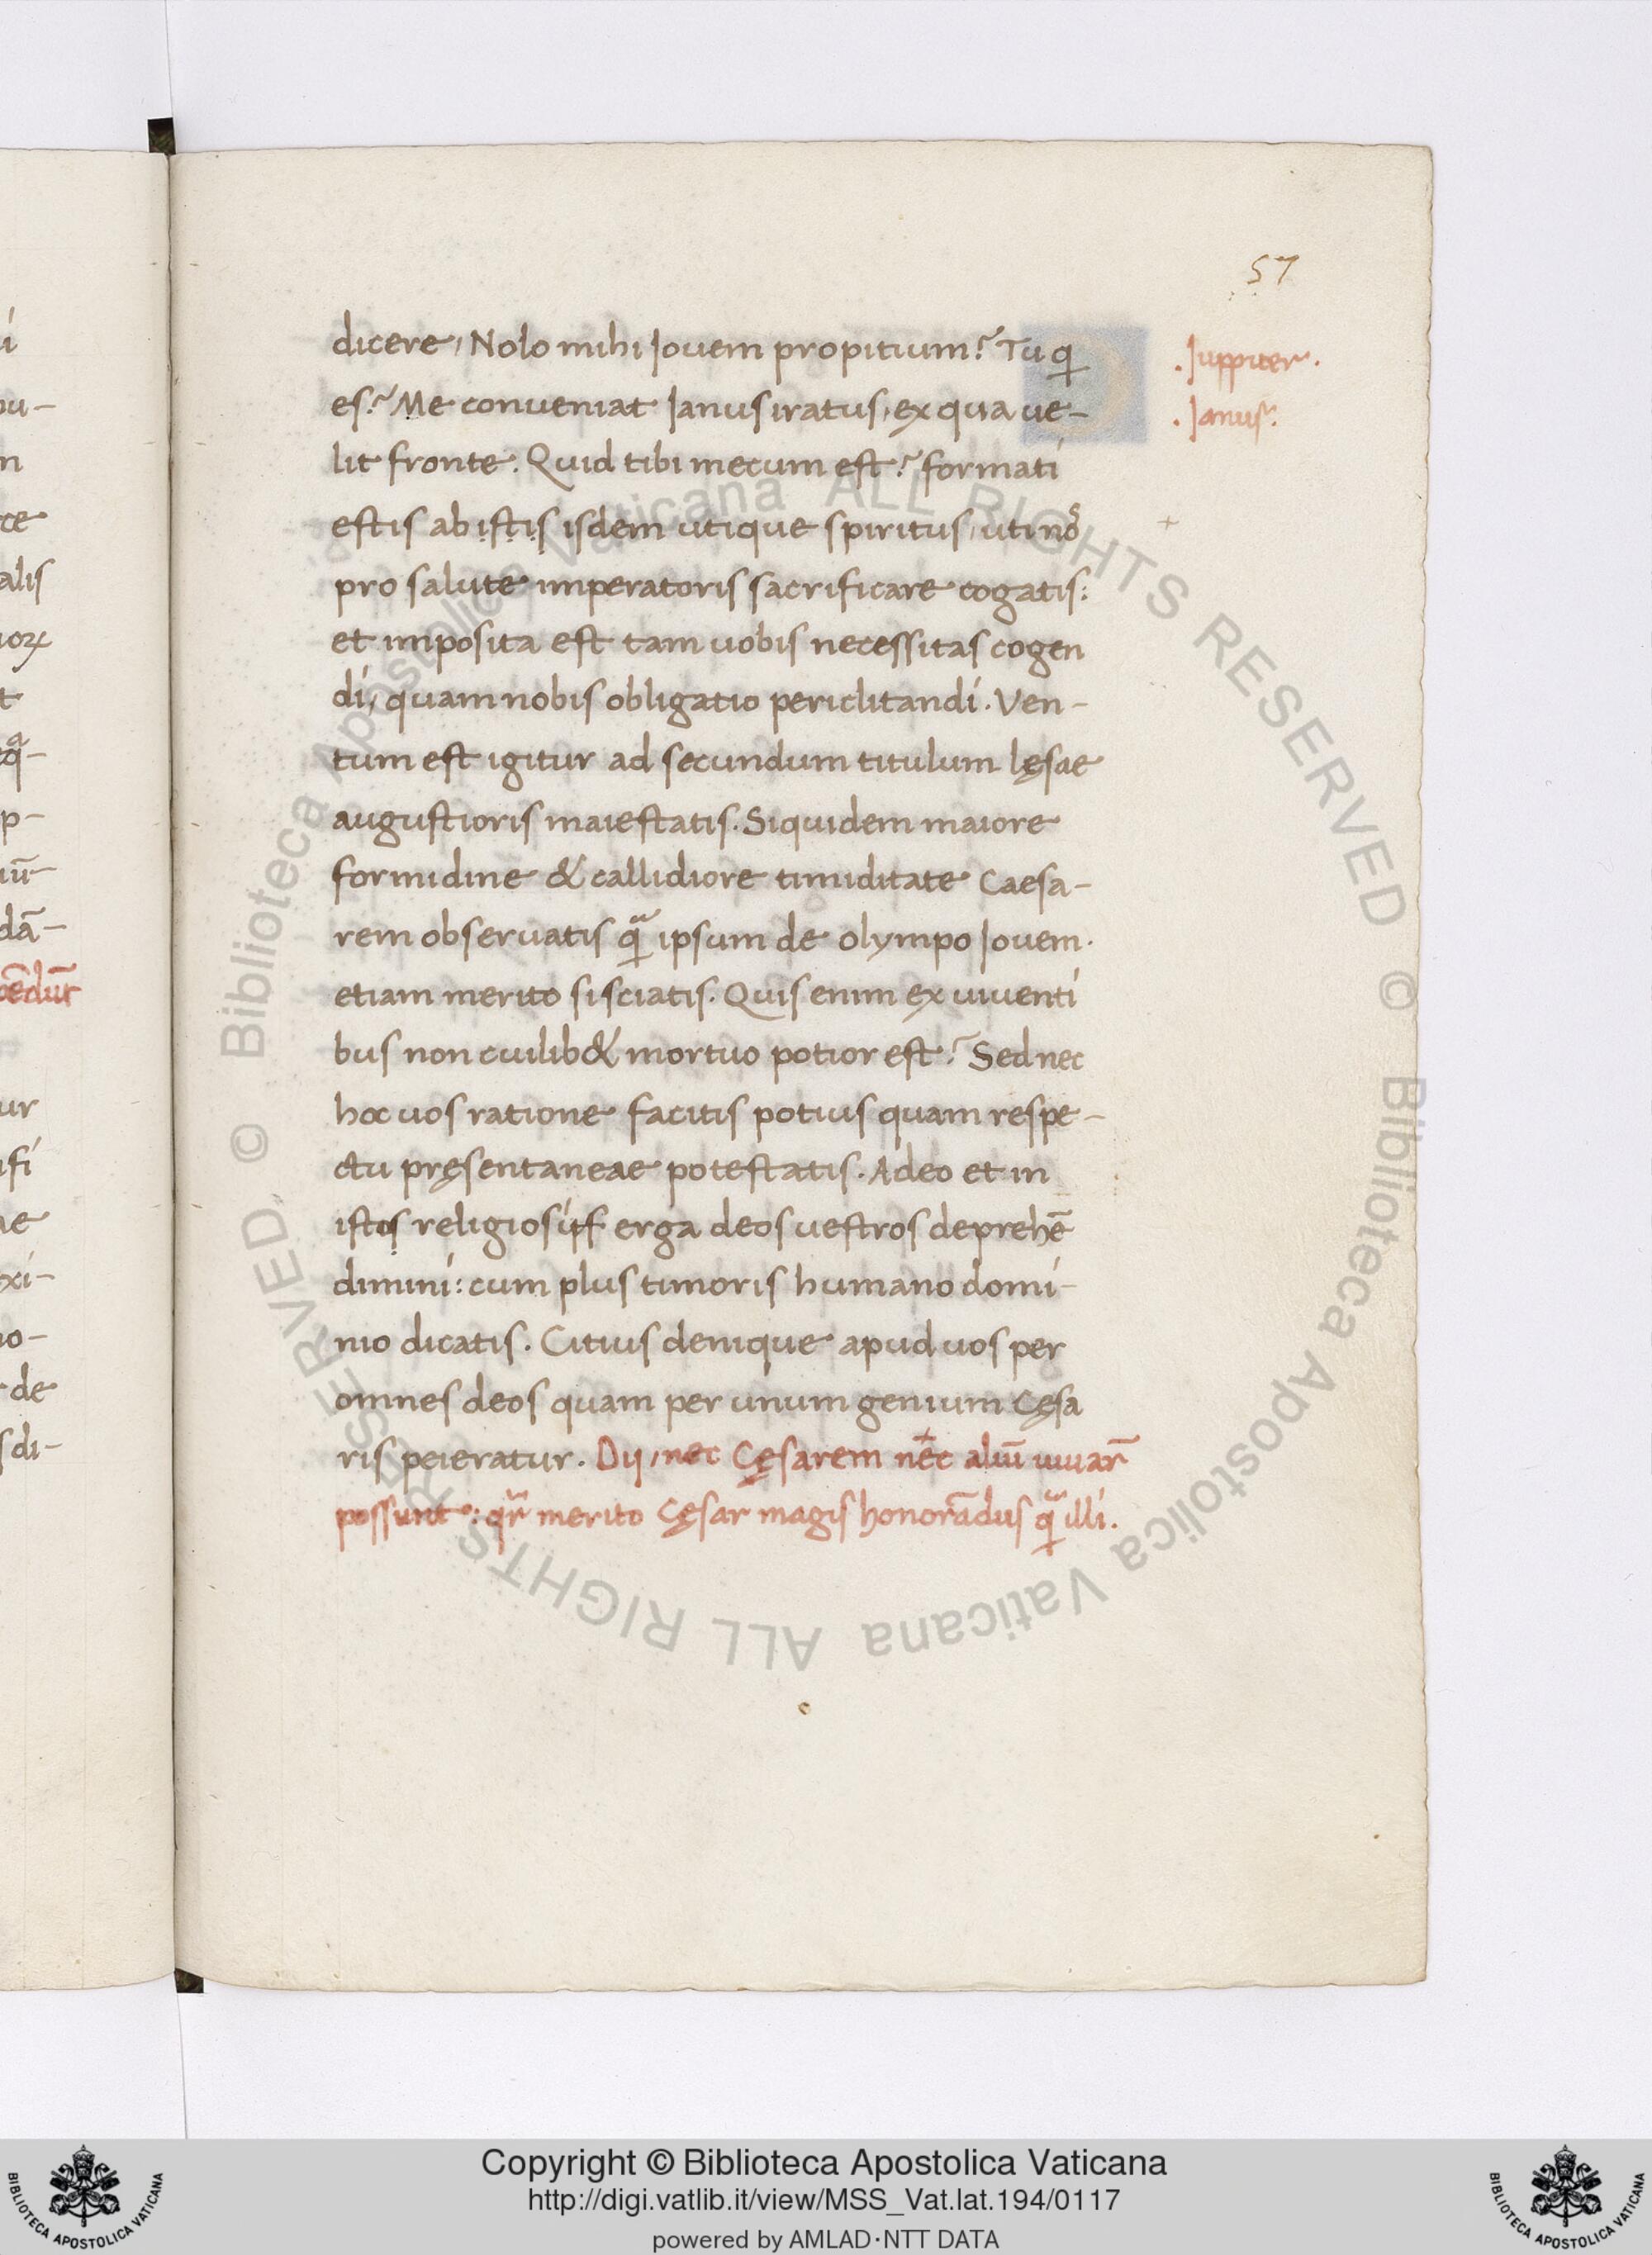 57
dicere, Nolo mihi Iovem propitium? Tu q̣
es? Me conveniat Ianus iratus, ex qua ue-
lit fronte. Quid tibi mecum est? formati
estis ab istis isdem utique spiritus, uti nos
pro salute imperatoris sacrificare cogatis:
et imposita est tam uobis necessitas cogen
di, quam nobis obligatio periclitandi. Ven-
tum est igitur ad secundum titulum lęsae
augustioris maiestatis. Siquidem maiore
formidine & callidiore timiditate Caesa-
rem observatis q̃ ipsum de olympo Iovem.
etiam merito si sciatis. Quis enim ex viventi
bus non cuilib& mortuo potior est? Sed nec
hoc uos ratione facitis potius quam respe-
ctu pręsentaneae potestatis. Adeo et in
istos religiosi erga deos uestros deprehē
dimini: cum plus timoris humano domi-
nio dicatis. Citius denique apud uos per
omnes deos quam per unum genium Cęsa
ris peieratur. Dij, nec Cęsarem nec aliū iuuar̄
possunt: qr̃ merito Cęsar magis honorādus q̃ illi.
. Iuppiter .
. Ianus.
+
i
ou-
n
ce
alis
iorꝝ
t
p-
iū-
dā-
cēdūt
ur
ifi
ae
xi-
io-
de
sdi-
Copyright © Biblioteca Apostolica Vaticana
http://digi.vatlib.it/view/MSS_Vat.lat.194/0117
powered by AMLAD·NTT DATA
BIBLIOTECA APOSTOLICA VATICANA
BIBLIOTECA APOSTOLICA VATICANA
© Biblioteca Apostolica Vaticana ALL RIGHTS RESERVED © Biblioteca Apostolica Vaticana ALL RIGHTS RESERVED.